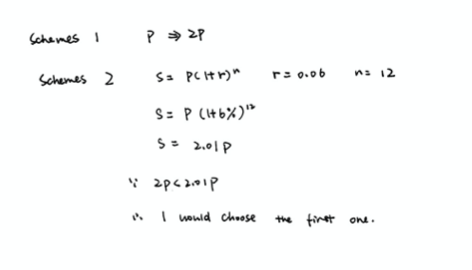 Schemes 1 P ⇒ 2P
Schemes 2 S = P(1+r)ⁿ r = 0.06 n = 12
S = P (1+6%)¹²
S = 2.01P
∵ 2P < 2.01P
∴ I would choose the first one.